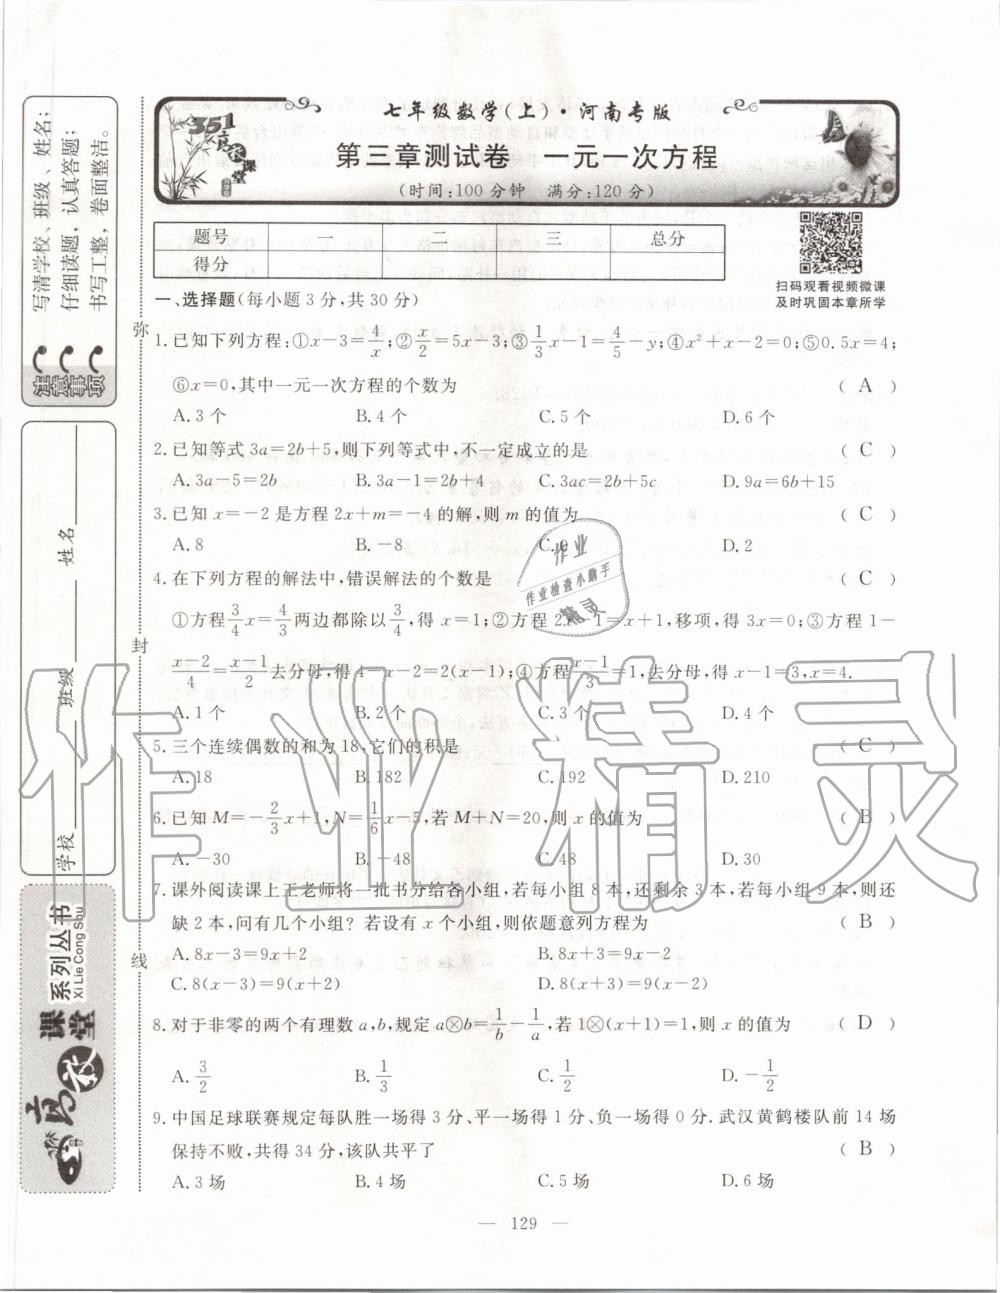 写清学校、班级、姓名;
仔细读题,认真答题;
书写工整,卷面整洁。
注意事项
学校 班级 姓名
系列丛书
Xi Lie Cong Shu
课堂
弥
封
线
351
高效课堂
七年级数学(上)·河南专版
第三章测试卷 一元一次方程
(时间:100分钟 满分:120分)
题号 一 二 三 总分
得分
扫码观看视频微课
及时巩固本章所学
一、选择题(每小题3分,共30分)
1.已知下列方程:①x-3=4/x;②x/2=5x-3;③1/3x-1=4/5-y;④x²+x-2=0;⑤0.5x=4;
⑥x=0,其中一元一次方程的个数为 ( A )
A.3个 B.4个 C.5个 D.6个
2.已知等式3a=2b+5,则下列等式中,不一定成立的是 ( C )
A.3a-5=2b B.3a-1=2b+4 C.3ac=2b+5c D.9a=6b+15
3.已知x=-2是方程2x+m=-4的解,则m的值为 ( C )
A.8 B.-8 C.0 D.2
4.在下列方程的解法中,错误解法的个数是 ( C )
①方程3/4x=4/3两边都除以3/4,得x=1;②方程2x-1=x+1,移项,得3x=0;③方程1-
x-2/4=x-1/2去分母,得4-x-2=2(x-1);④方程x-1/3=1,去分母,得x-1=3,x=4.
A.1个 B.2个 C.3个 D.4个
5.三个连续偶数的和为18,它们的积是 ( C )
A.18 B.182 C.192 D.210
6.已知M=-2/3x+1,N=1/6x-5,若M+N=20,则x的值为 ( B )
A.-30 B.-48 C.48 D.30
7.课外阅读课上王老师将一批书分给各小组,若每小组8本,还剩余3本,若每小组9本,则还
缺2本,问有几个小组?若设有x个小组,则依题意列方程为 ( B )
A.8x-3=9x+2 B.8x+3=9x-2
C.8(x-3)=9(x+2) D.8(x+3)=9(x-2)
8.对于非零的两个有理数a,b,规定a⊗b=1/b-1/a,若1⊗(x+1)=1,则x的值为 ( D )
A.3/2 B.1/3 C.1/2 D.-1/2
9.中国足球联赛规定每队胜一场得3分、平一场得1分、负一场得0分.武汉黄鹤楼队前14场
保持不败,共得34分,该队共平了 ( B )
A.3场 B.4场 C.5场 D.6场
作业
作业检查小助手
精灵
作业精灵
— 129 —